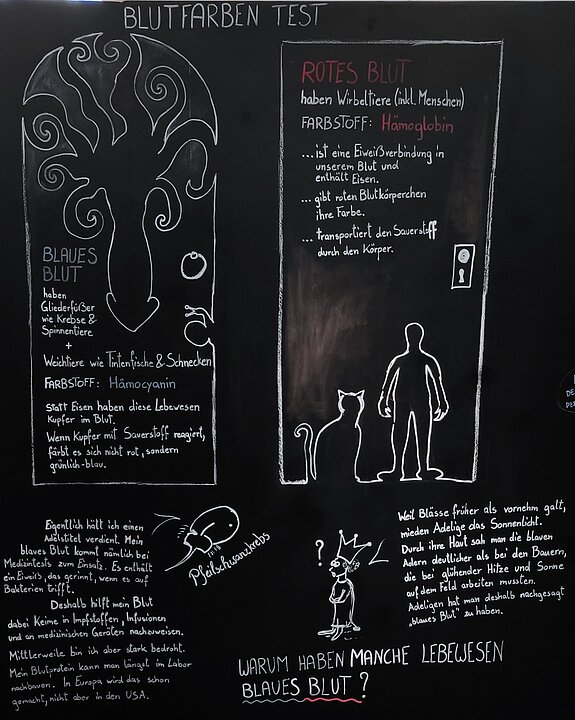 BLUTFARBEN TEST
BLAUES
BLUT
haben
Gliederfüßer
wie Krebse &
Spinnentiere
+
Weichtiere wie Tintenfische & Schnecken
FARBSTOFF: Hämocyanin
statt Eisen haben diese Lebewesen
Kupfer im Blut.
Wenn Kupfer mit Sauerstoff reagiert,
färbt es sich nicht rot, sondern
grünlich-blau.
ROTES BLUT
haben Wirbeltiere (inkl. Menschen)
FARBSTOFF: Hämoglobin
... ist eine Eiweißverbindung in
unserem Blut und
enthält Eisen.
... gibt roten Blutkörperchen
ihre Farbe.
... transportiert den Sauerstoff
durch den Körper.
Eigentlich hätt ich einen
Adelstitel verdient. Mein
blaues Blut kommt nämlich bei
Medizintests zum Einsatz. Es enthält
ein Eiweiß, das gerinnt, wenn es auf
Bakterien trifft.
Deshalb hilft mein Blut
dabei Keime in Impfstoffen, Infusionen
und an medizinischen Geräten nachzuweisen.
Mittlerweile bin ich aber stark bedroht.
Mein Blutprotein kann man längst im Labor
nachbauen. In Europa wird das schon
gemacht, nicht aber in den USA.
Pfeilschwanzkrebs
?
Weil Blässe früher als vornehm galt,
mieden Adelige das Sonnenlicht.
Durch ihre Haut sah man die blauen
Adern deutlicher als bei den Bauern,
die bei glühender Hitze und Sonne
auf dem Feld arbeiten mussten.
Adeligen hat man deshalb nachgesagt
„blaues Blut" zu haben.
WARUM HABEN MANCHE LEBEWESEN
BLAUES BLUT?